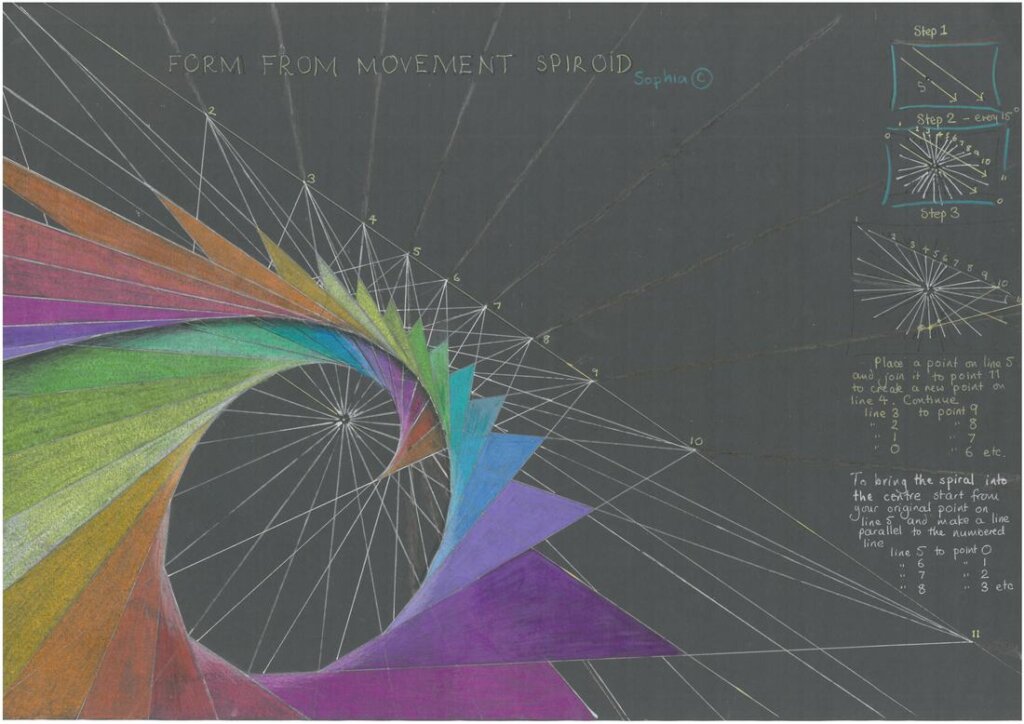 FORM FROM MOVEMENT SPIROID
Sophia ©
Step 1
5
Step 2 - every 15°
0 1 2 3 4 5 6 7 8 9 10 11 0
Step 3
1 2 3 4 5 6 7 8 9 10 11
2
3
4
5
6
7
8
9
10
11
Place a point on line 5
and join it to point 11
to create a new point on
line 4. Continue
line 3 to point 9
" 2 " 8
" 1 " 7
" 0 " 6 etc.
To bring the spiral into
the centre start from
your original point on
line 5 and make a line
parallel to the numbered
line
line 5 to point 0
" 6 " 1
" 7 " 2
" 8 " 3 etc